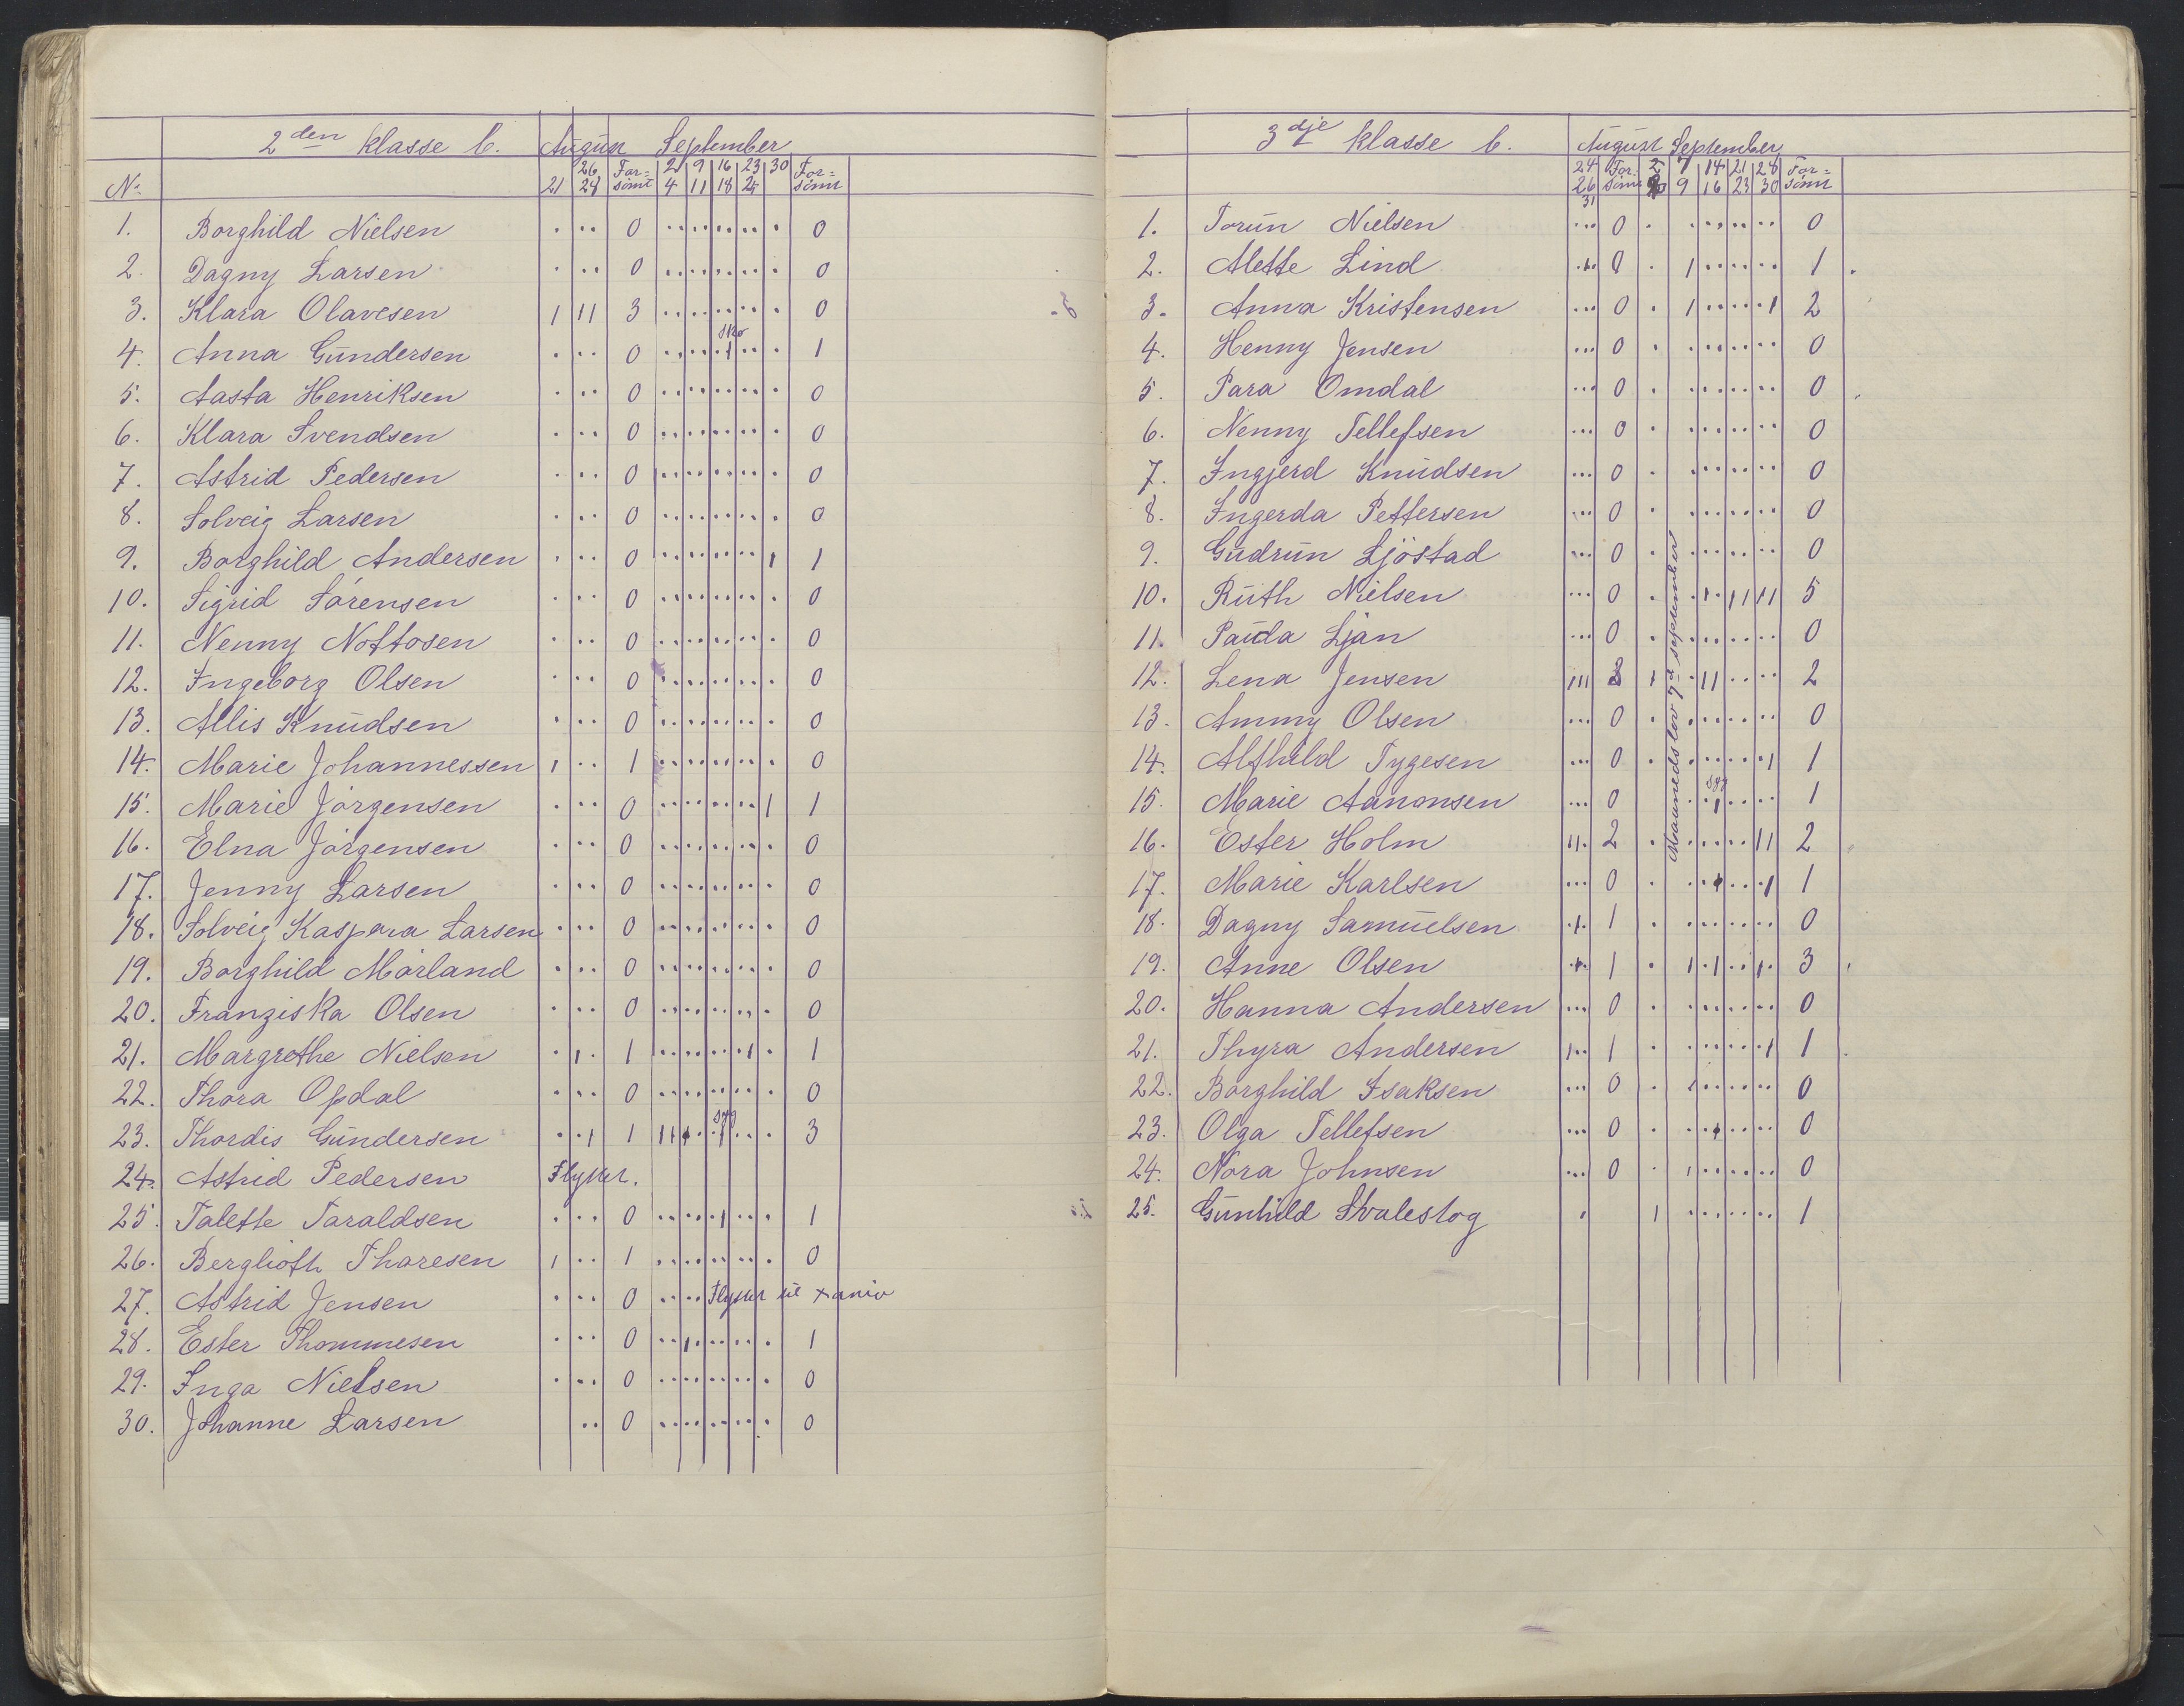 2den klasse b. August September
No 21 26 28 For= sömt 2 4 9 11 16 18 23 25 30 For= sömt
1. Borghild Nielsen . .. 0 .. .. .. .. . 0
2. Dagny Larsen . .. 0 .. .. .. .. . 0
3. Klara Olavesen 1 11 3 .. .. .. .. . 0
4. Anna Gundersen . .. 0 .. .. .1 .. . 1
5. Aasta Henriksen . .. 0 .. .. .. .. . 0
6. Klara Svendsen . .. 0 .. .. .. .. . 0
7. Astrid Pedersen . .. 0 .. .. .. .. . 0
8. Solveig Larsen . .. 0 .. .. .. .. . 0
9. Borghild Andersen . .. 0 .. .. .. .. 1 1
10. Sigrid Sørensen . .. 0 .. .. .. .. . 0
11. Nenny Nottosen . .. 0 .. .. .. .. . 0
12. Ingeborg Olsen . .. 0 .. .. .. .. . 0
13. Allis Knudsen . .. 0 .. .. .. .. . 0
14. Marie Johannessen 1 .. 1 .. .. .. .. . 0
15. Marie Jörgensen . .. 0 .. .. .. .. 1 1
16. Elna Jörgensen . .. 0 .. .. .. .. . 0
17. Jenny Larsen . .. 0 .. .. .. .. . 0
18. Solveig Kaspara Larsen . .. 0 .. .. .. .. . 0
19. Borghild Mörland . .. 0 .. .. .. .. . 0
20. Franziska Olsen . .. 0 .. .. .. .. . 0
21. Margrethe Nielsen . 1. 1 .. .. .. .1 . 1
22. Thora Opdal . .. 0 .. .. .. .. . 0
23. Thordis Gundersen . .1 1 11 1. .1 .. . 3
syg
24. Astrid Pedersen Flyttet.
25. Talette Taraldsen . .. 0 .. .. .1 .. . 1
26. Berglioth Tharesen 1 .. 1 .. .. .. .. . 0
27. Astrid Jensen . .. 0 .. .. Flyttet til Xania
28. Ester Thommesen . .. 0 .. 1. .. .. . 1
29. Inga Nielsen . .. 0 .. .. .. .. . 0
30. Johanne Larsen .. 0 .. .. .. .. . 0
3dje klasse b. August September
24 26 31 For. sömt 2 7 9 14 16 21 23 28 30 For= sömt
1. Torun Nielsen ... 0 . . .. .. .. 0
2. Alette Lind 0 . 1 .. .. .. 1
3. Anna Kristensen ... 0 . 1 .. .. .1 2
4. Henny Jensen ... 0 . . .. .. .. 0
5. Para Omdal ... 0 . . .. .. .. 0
6. Nenny Tellefsen ... 0 . . .. .. .. 0
7. Ingjerd Knudsen ... 0 . . .. .. .. 0
8. Ingerda Pettersen ... 0 . . .. .. .. 0
9. Gudrun Ljöstad ... 0 . . .. .. .. 0
10. Ruth Nielsen ... 0 . . 1. 11 11 5
11. Paula Ljan ... 0 . . .. .. .. 0
12. Lena Jensen 111 3 1 . 11 .. .. 2
13. Ammy Olsen ... 0 . . .. .. .. 0
14. Alfhild Tygesen ... 0 . . .. .. .1 1
15. Marie Aanonsen ... 0 . .1 .. .. 1
syg
16. Ester Holm 11. 2 . . .. .. 11 2
17. Marie Karlsen ... 0 . . .. .. .1 1
18. Dagny Samuelsen .1. 1 . . .. .. .. 0
19. Anne Olsen .1. 1 . 1 .1 .. 1. 3
20. Hanna Andersen ... 0 . . .. .. .. 0
21. Thyra Andersen 1.. 1 . . .. .. .1 1
22. Borghild Isaksen ... 0 . . .. .. .. 0
23. Olga Tellefsen ... 0 . . .. .. .. 0
24. Nora Johnsen ... 0 . . .. .. .. 0
25. Gunhild Svalestog . 1 . .. .. .. 1
Maanedslov 7de september